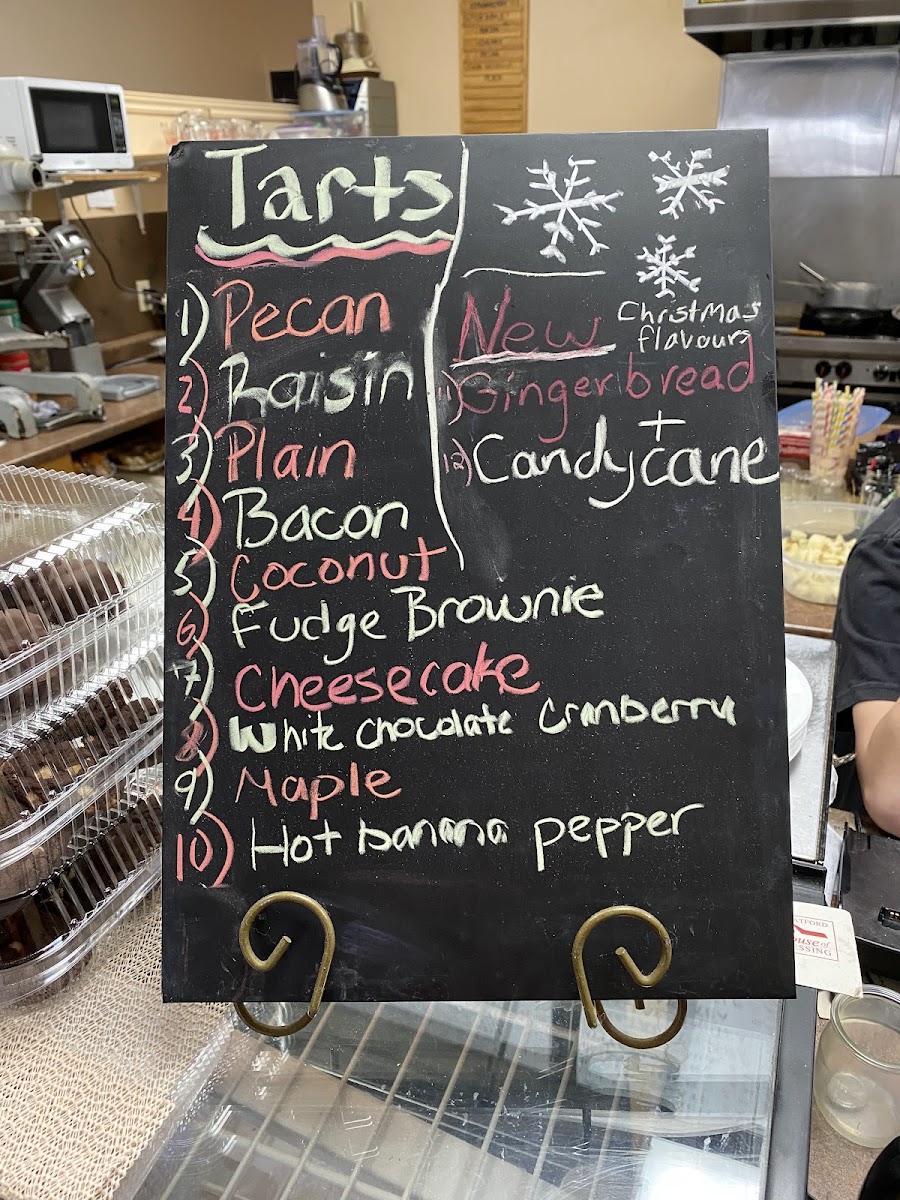 Tarts
1) Pecan
2) Raisin
3) Plain
4) Bacon
5) Coconut
6) Fudge Brownie
7) Cheesecake
8) White chocolate Cranberry
9) Maple
10) Hot banana pepper
New Christmas
flavours
11) Gingerbread
+
12) Candycane